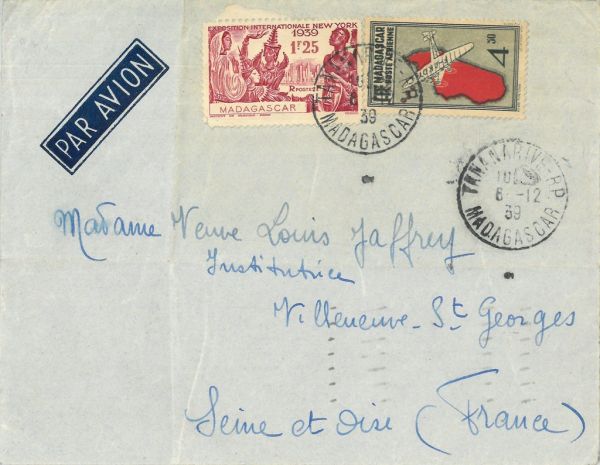 EXPOSITION INTERNATIONALE NEW YORK
1939
1F25
RF POSTES
MADAGASCAR
MADAGASCAR
POSTE AÉRIENNE
4 50
PAR AVION
MADAGASCAR
39
TANANARIVE-RP
6 -12
39
MADAGASCAR
Madame Veuve Louis Jaffrey
Institutrice
Villeneuve-St Georges
Seine et Oise (France)